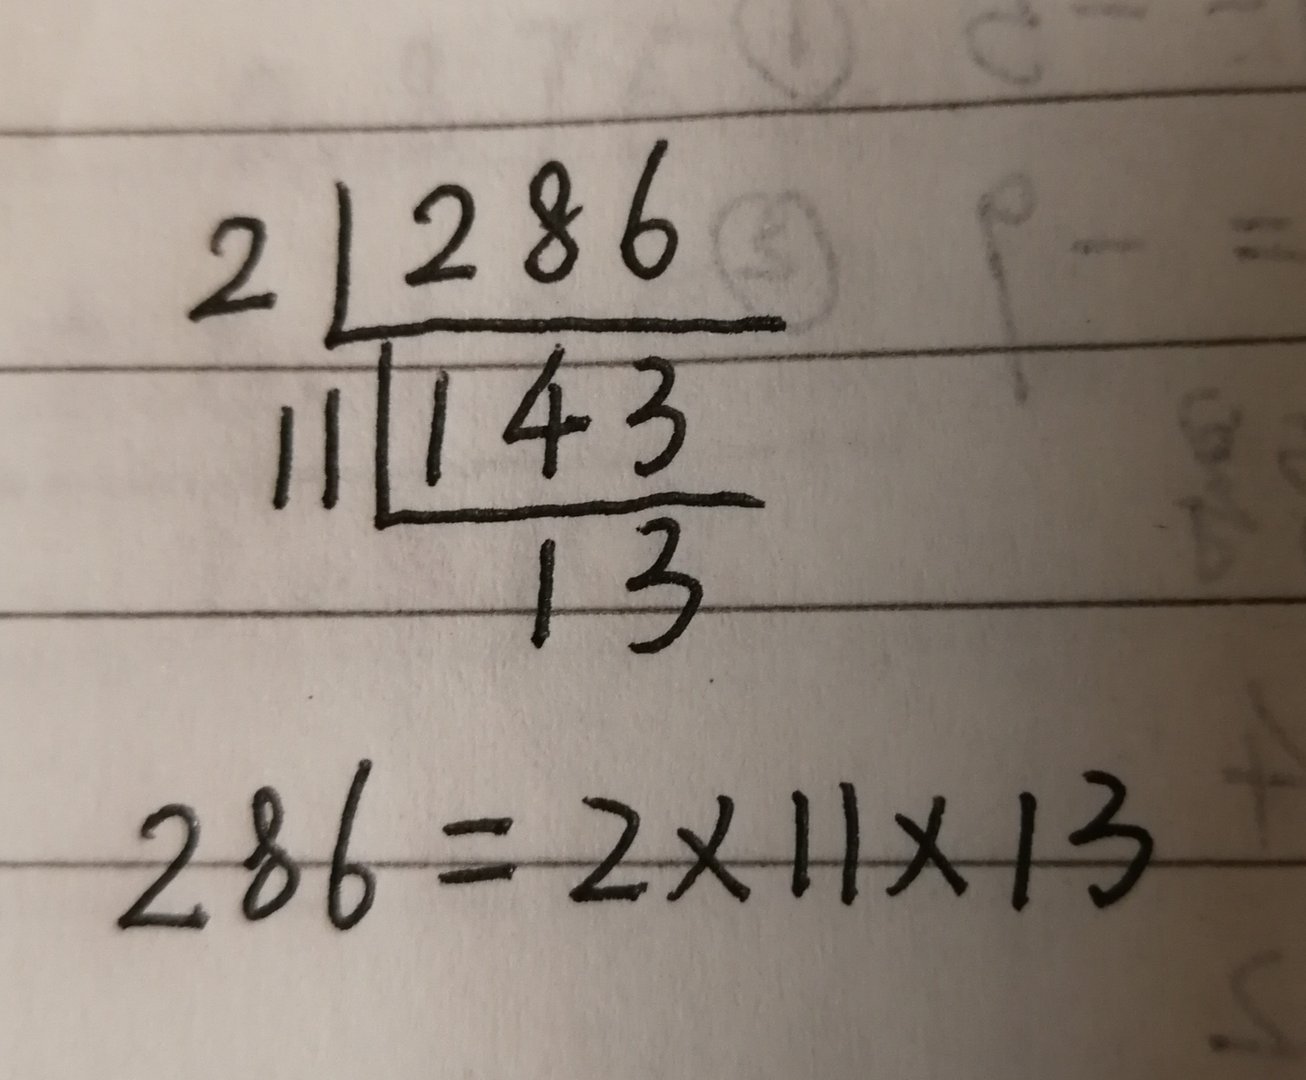 2 286
11 143
13
286 = 2 × 11 × 13